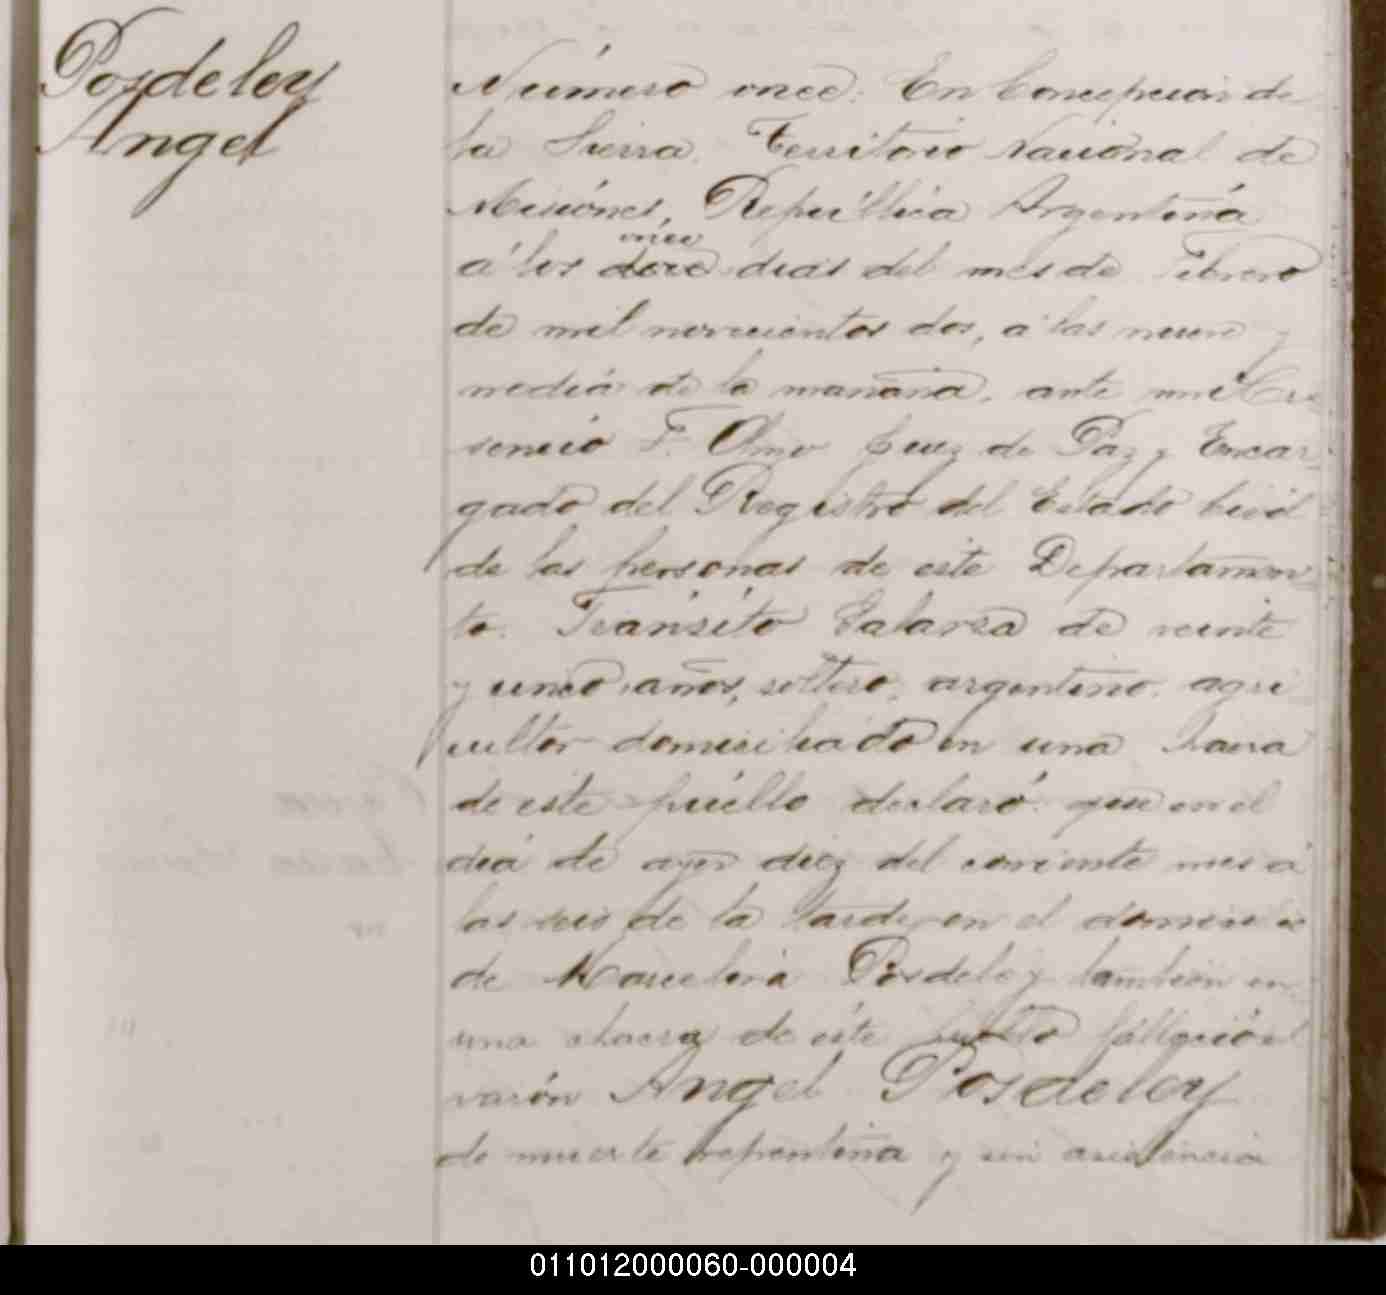 Posdeley
Angel
Número once. En Concepcion de
la Sierra, Territorio Nacional de
Misiónes, República Argentina
á los doce dias del mes de Febrero
once
de mil novecientos dos, á las nueve y
media de la mañana, ante mi Cre
sencio F. Olmo Juez de Paz y Encar-
gado del Registro del Estado Civil
de las personas de este Departamen-
to. Tránsito Galarza de veinte
y cinco años, soltero, argentino, agri
cultor domiciliado en una chacra
de este pueblo declaró: que en el
dia de ayer diez del corriente mes á
las seis de la tarde en el domicilio
de Marcelina Posdeley tambien en
una chacra de este pueblo falleció el
varón Angel Posdeley
de muerte repentina y sin asistencia
011012000060-000004